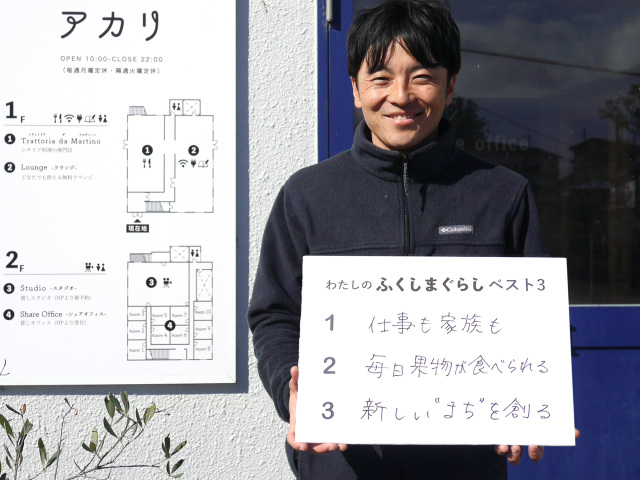 アカリ
OPEN 10:00-CLOSE 22:00
(毎週月曜定休・隔週火曜定休)
1F
1 Trattoria da Martino
シチリア料理の専門店
2 Lounge -ラウンジ-
どなたでも使える無料ラウンジ
1
2
現在地
2F
3 Studio -スタジオ-
貸しスタジオ(HPより要予約)
4 Share Office -シェアオフィス-
貸しオフィス(HPより受付)
3
4
Columbia
e office
わたしの ふくしまぐらし ベスト3
1 仕事も家族も
2 毎日果物が食べられる
3 新しい"まち"を創る